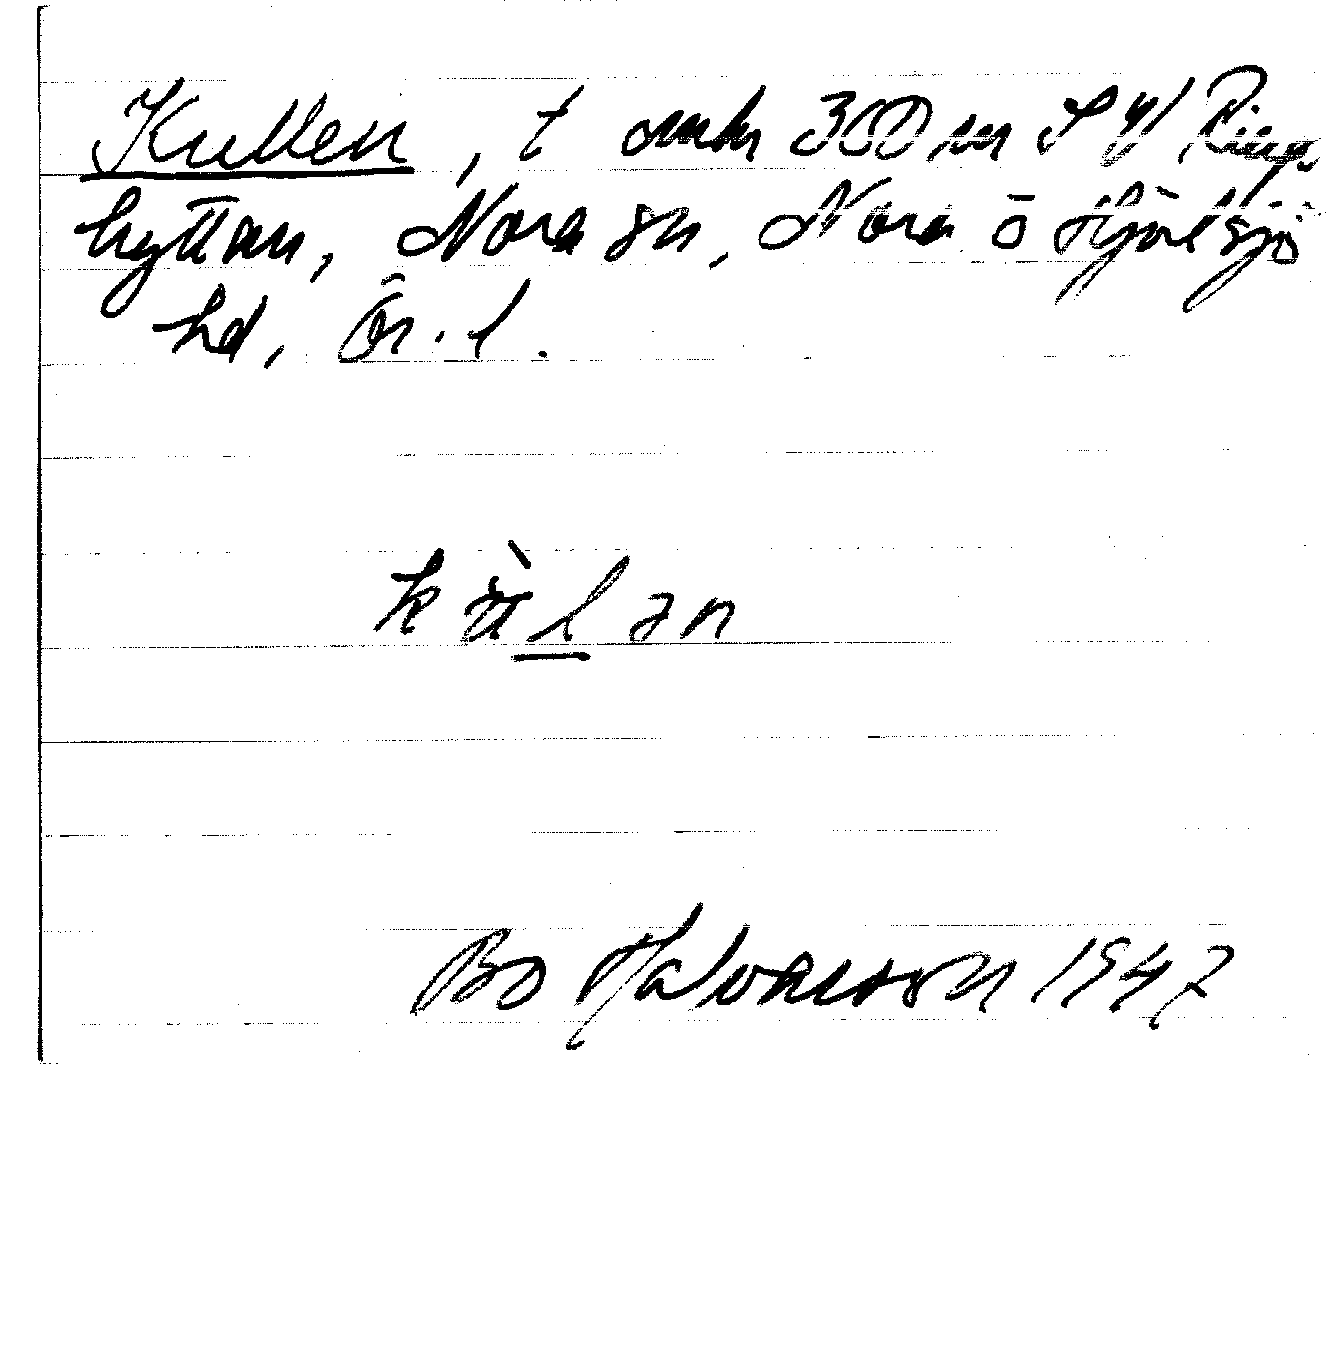 Kullen, t omkr 300 m SV Ring-
hyttan, Nora sn, Nora ō Hjulsjö
hd, Ör. l.
Bo Halvarson 1947